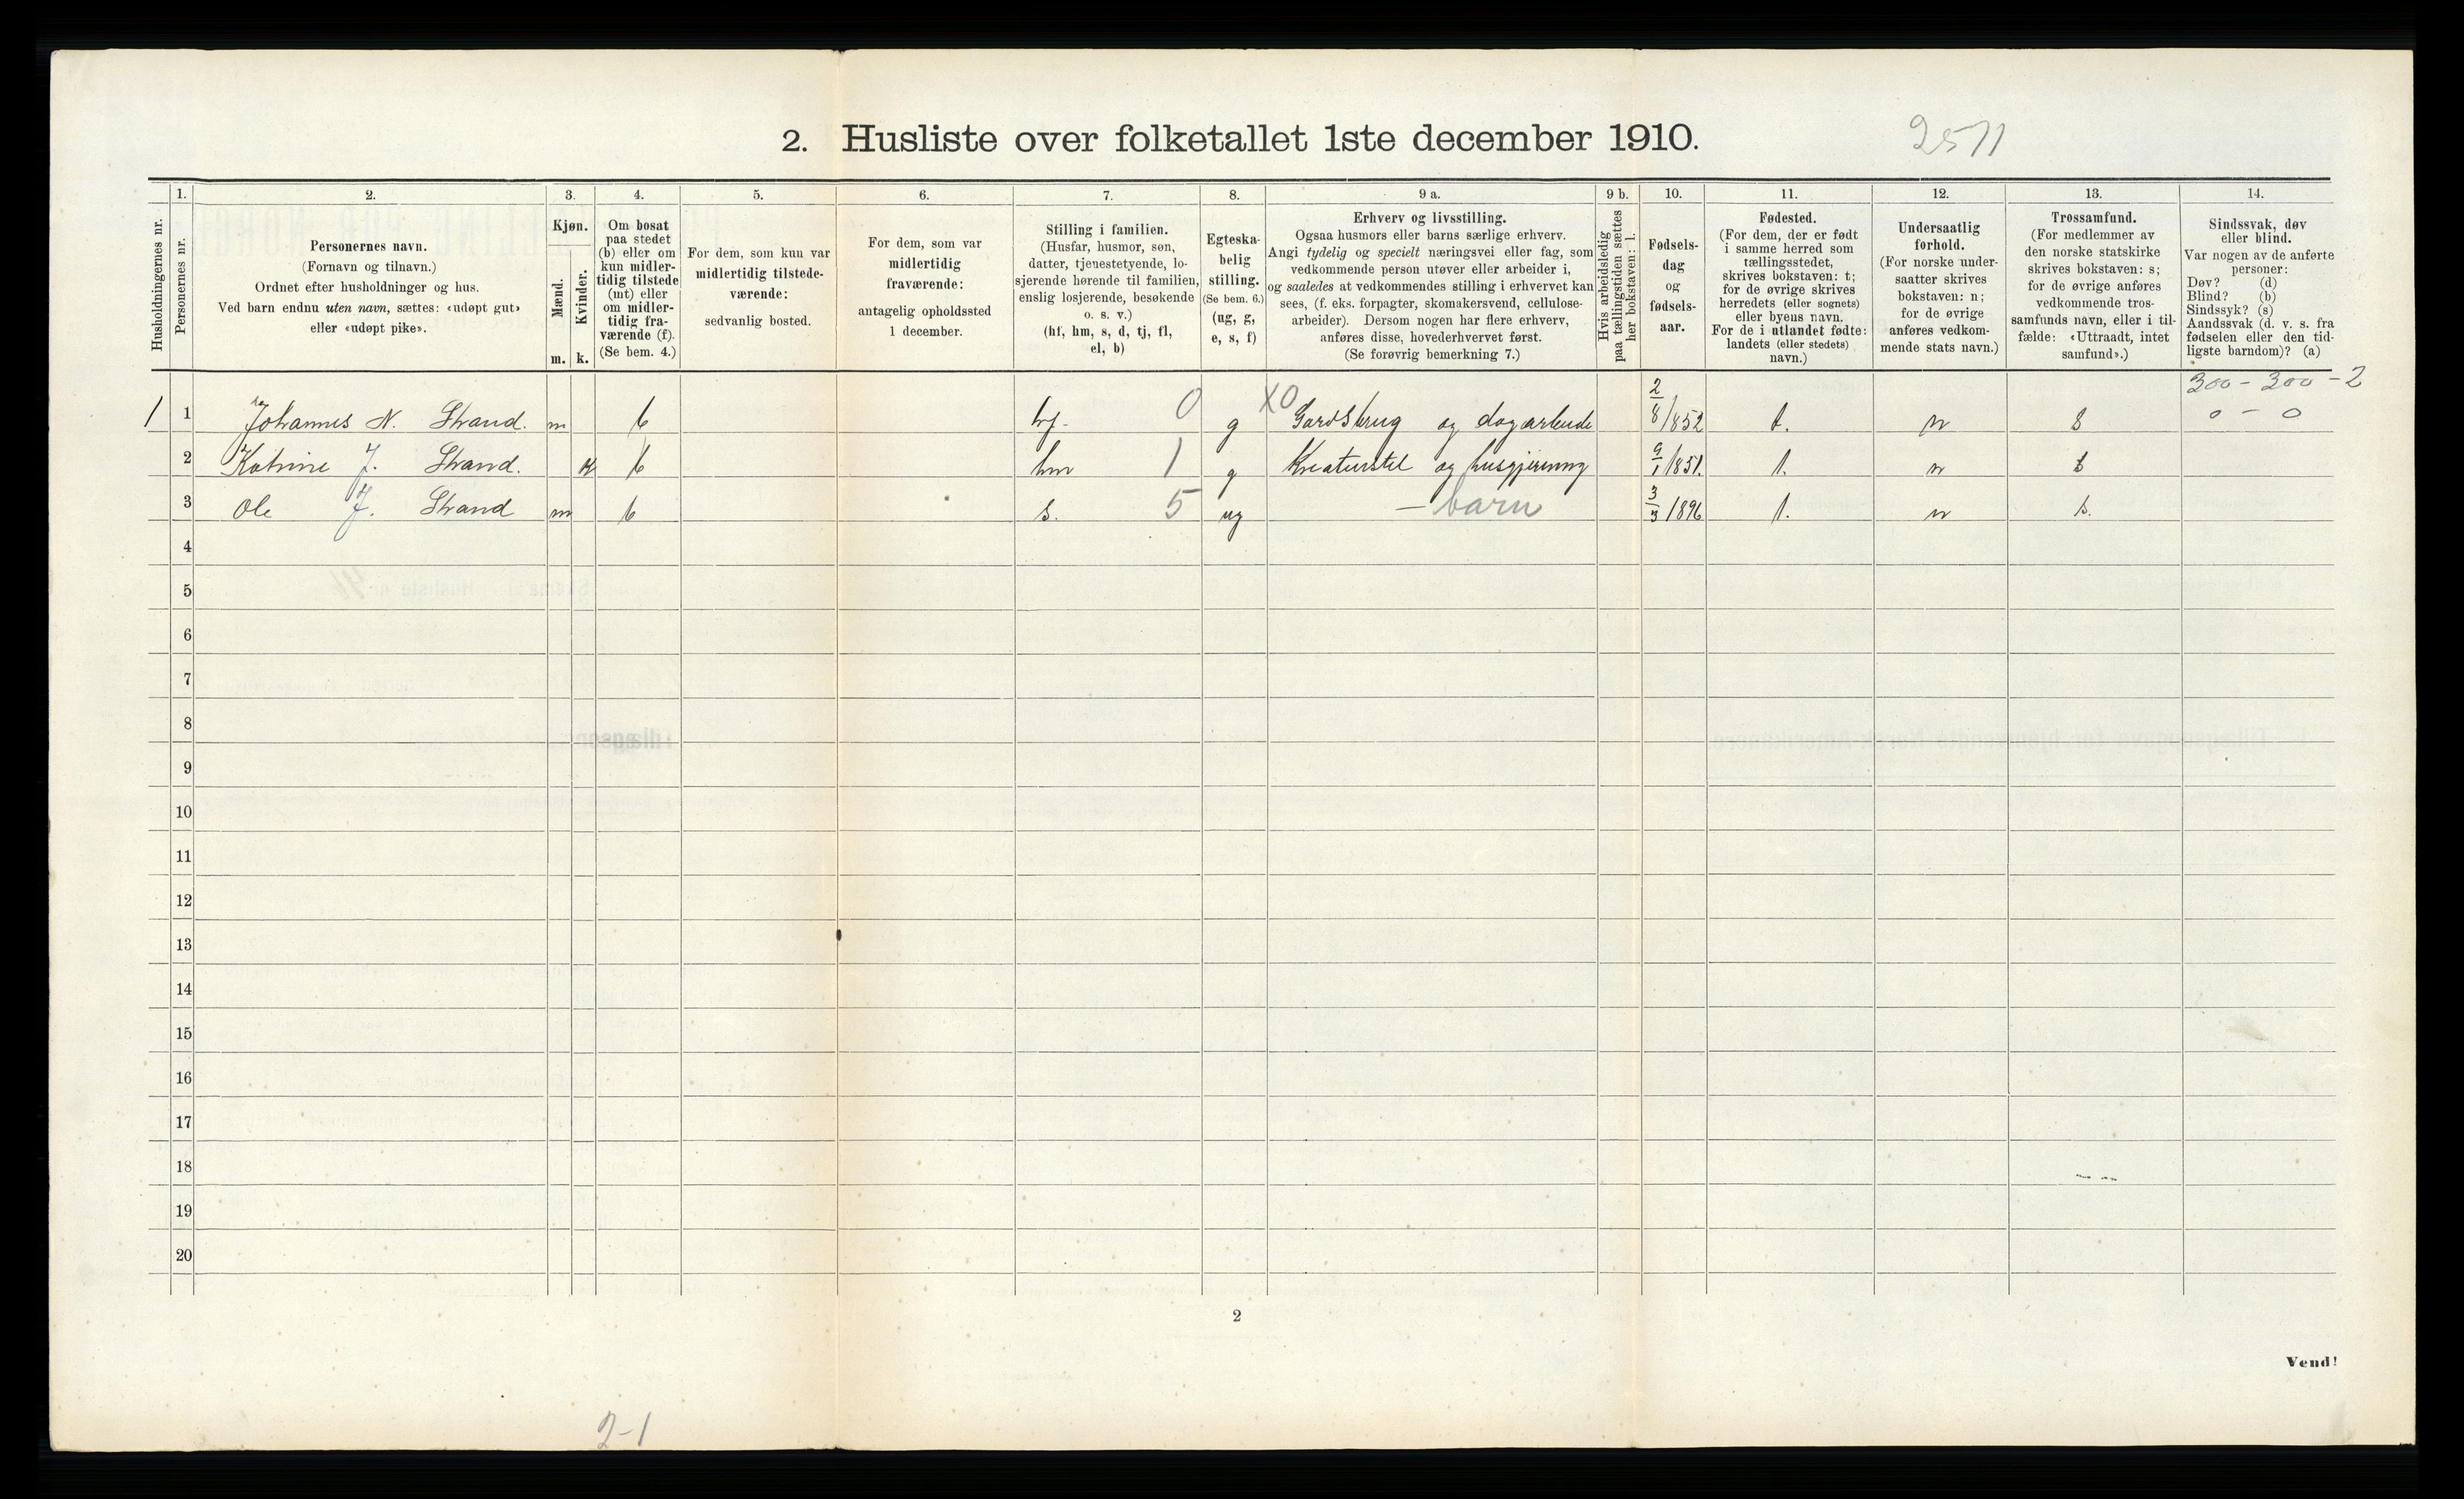 2. Husliste over folketallet 1ste december 1910.
2571
1. 2. 3. 4. 5. 6. 7. 8. 9 a. 9 b. 10. 11. 12. 13. 14.
Husholdningernes nr.
Personernes nr.
Personernes navn.
(Fornavn og tilnavn.)
Ordnet efter husholdninger og hus.
Ved barn endnu uten navn, sættes: «udøpt gut»
eller «udøpt pike».
Kjøn.
Mænd.
Kvinder.
m. k.
Om bosat
paa stedet
(b) eller om
kun midler-
tidig tilstede
(mt) eller
om midler-
tidig fra-
værende (f).
(Se bem. 4.)
For dem, som kun var
midlertidig tilstede-
værende:
sedvanlig bosted.
For dem, som var
midlertidig
fraværende:
antagelig opholdssted
1 december.
Stilling i familien.
(Husfar, husmor, søn,
datter, tjenestetyende, lo-
sjerende hørende til familien,
enslig losjerende, besøkende
o. s. v.)
(hf, hm, s, d, tj, fl,
el, b)
Egteska-
belig
stilling.
(Se bem. 6.)
(ug, g,
e, s, f)
Erhverv og livsstilling.
Ogsaa husmors eller barns særlige erhverv.
Angi tydelig og specielt næringsvei eller fag, som
vedkommende person utøver eller arbeider i,
og saaledes at vedkommendes stilling i erhvervet kan
sees, (f. eks. forpagter, skomakersvend, cellulose-
arbeider). Dersom nogen har flere erhverv,
anføres disse, hovederhvervet først.
(Se forøvrig bemerkning 7.)
Hvis arbeidsledig
paa tællingstiden sættes
her bokstaven: l.
Fødsels-
dag
og
fødsels-
aar.
Fødested.
(For dem, der er født
i samme herred som
tællingsstedet,
skrives bokstaven: t;
for de øvrige skrives
herredets (eller sognets)
eller byens navn.
For de i utlandet fødte:
landets (eller stedets)
navn.)
Undersaatlig
forhold.
(For norske under-
saatter skrives
bokstaven: n;
for de øvrige
anføres vedkom-
mende stats navn.)
Trossamfund.
(For medlemmer av
den norske statskirke
skrives bokstaven: s;
for de øvrige anføres
vedkommende tros-
samfunds navn, eller i til-
fælde: «Uttraadt, intet
samfund».)
Sindssvak, døv
eller blind.
Var nogen av de anførte
personer:
Døv? (d)
Blind? (b)
Sindssyk? (s)
Aandssvak (d. v. s. fra
fødselen eller den tid-
ligste barndom)? (a)
300 - 300 - 2
0 - 0
1 1 Johannes N. Strand. m b hf. 0 g X0 Gardsbrug og dagarbeide 2/8/852 t. n s
2 Katrine J. Strand. k b hm 1 g Kreaturstel og husgjerning 9/1/851. t. n s
3 Ole J. Strand m b s. 5 ug — barn 3/3/1896 t. n s.
4
5
6
7
8
9
10
11
12
13
14
15
16
17
18
19
20
2
Vend!
2-1